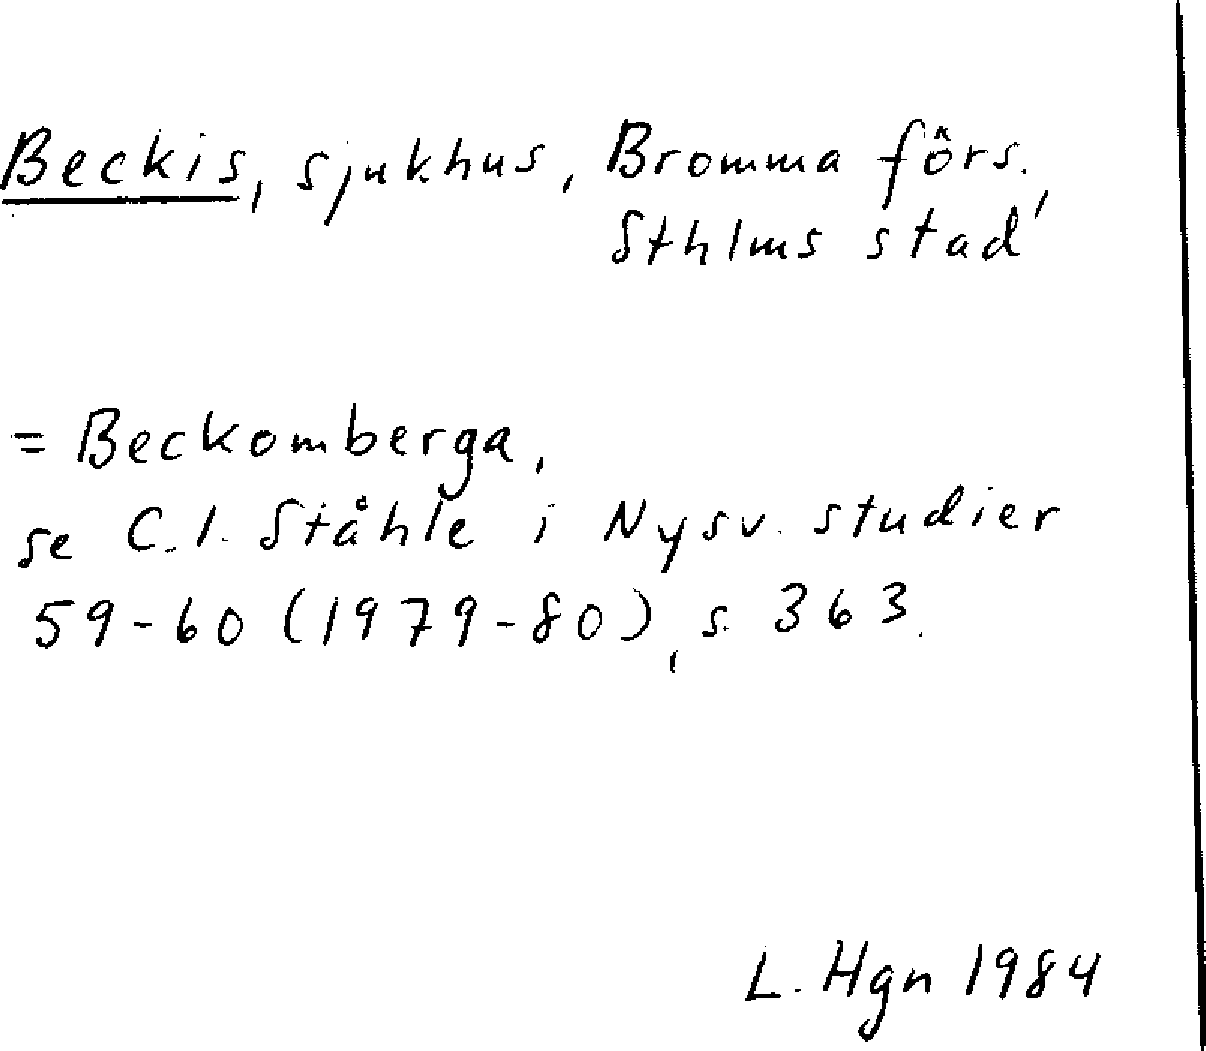 Beckis, sjukhus, Bromma förs.,
Sthlms stad
= Beckomberga,
se C.I. Ståhle i Nysv. studier
59-60 (1979-80), s. 363.
L. Hgn 1984